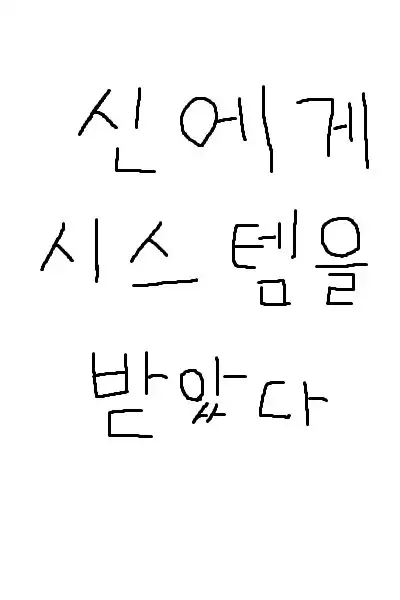 신에게
시스템을
받았다